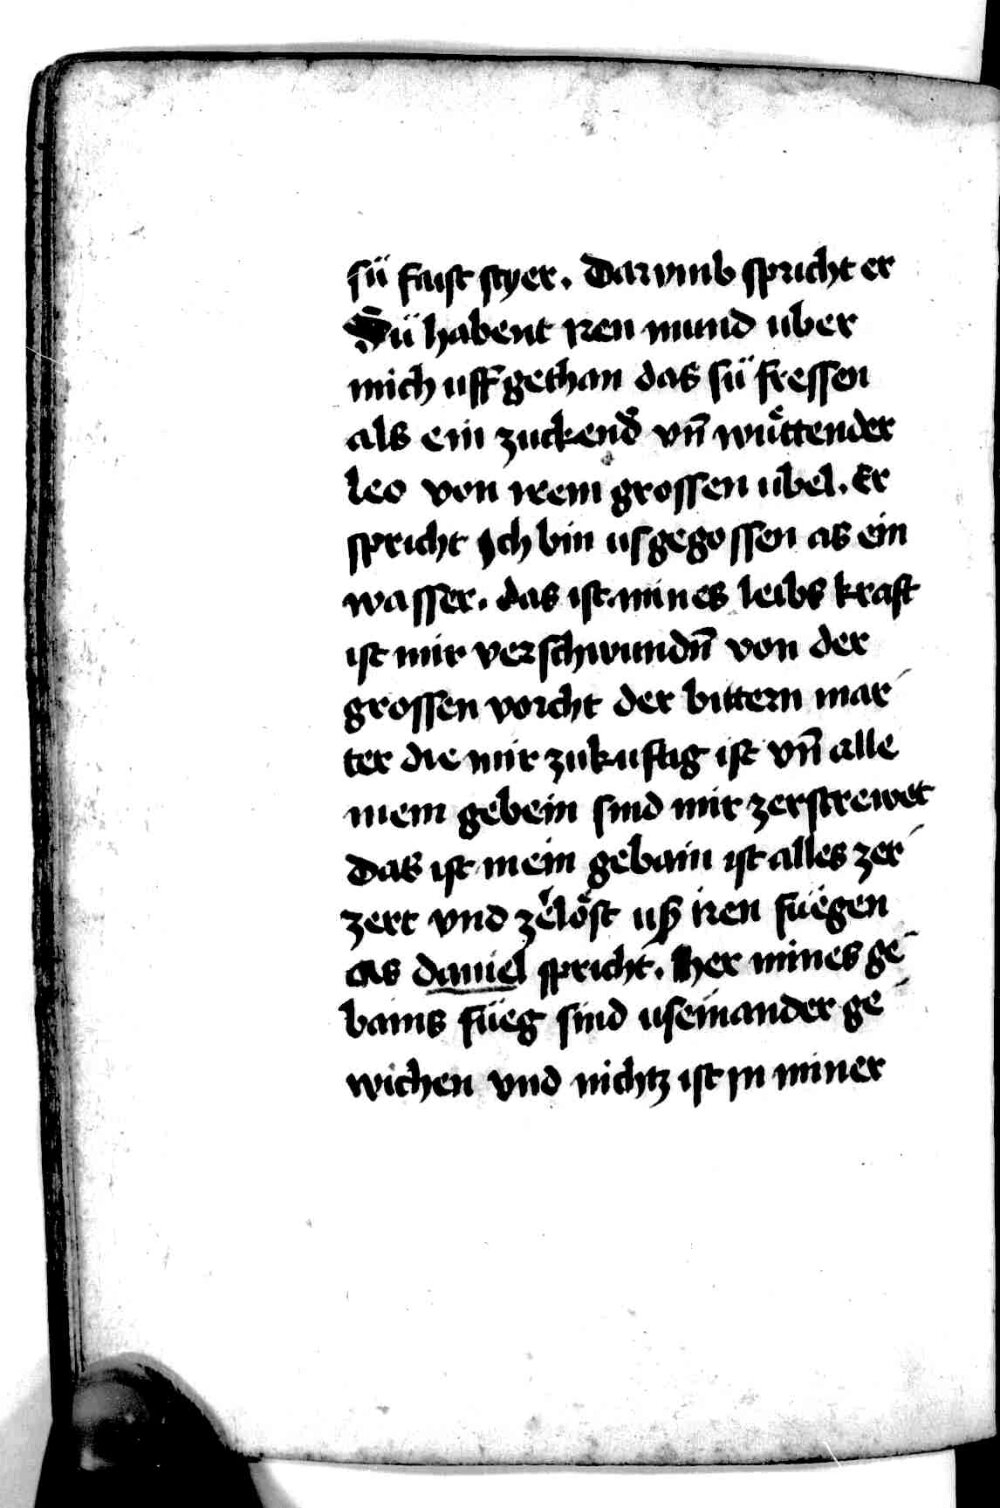 sü faist styer. Darvmb spricht er
Sü habent iren mund uber
mich uff gethan das sü fressen
als ein zuckend᷑ vn̄ wu̇ttender
leo von irem grossen ubel. Er
spricht Ich bin usgegossen as ein
wasser. das ist mines leibs kraft
ist mir verschwundn̄ von der
grossen vorcht der bittern mar
ter die mir zukuftig ist vn̄ alle
mein gebein sind mir zerstrewet
Das ist mein gebain ist alles zer
zert vnd zelöst uß iren füegen
as daniel spricht. Her mines ge
bains füeg sind useinander ge
wichen vnd nichtz ist in miner